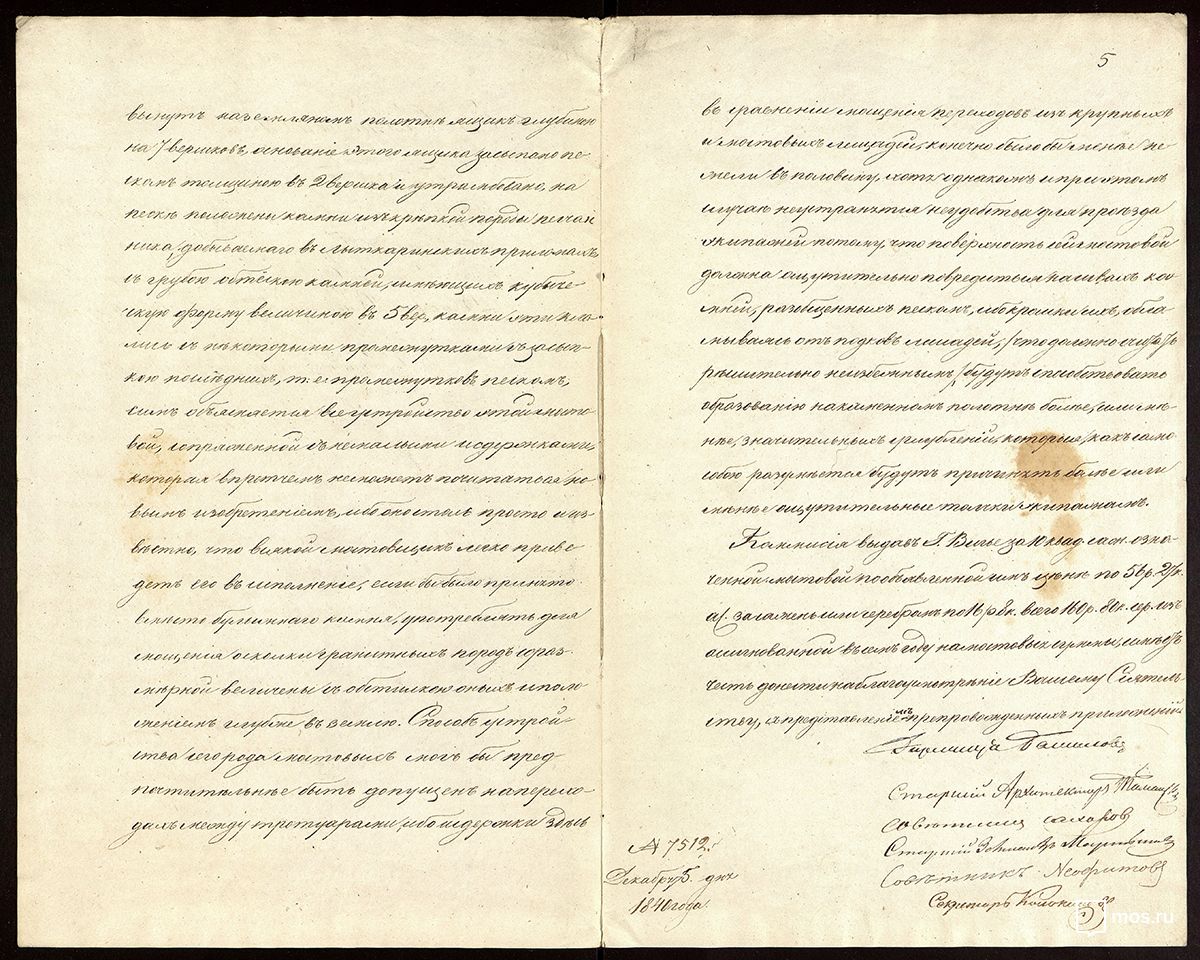 вынутъ на земляномъ полотнѣ ящикъ глубиною
на 7 вершковъ, основаніе этого ящика засыпано пе-
скомъ толщиною въ 2 вершка и утрамбовано, на
пескѣ положены камни изъ крѣпкой породы песча-
ника, добываемаго въ Лыткаринскихъ приломахъ
съ грубою обтескою камней, имѣющихъ кубиче-
скую форму величиною въ 5 вер., камни эти кла-
лись съ нѣкоторыми промежутками съ засып-
кою послѣднихъ, т: е. промежутковъ пескомъ,
симъ объясняется все устройство этой мосто-
вой, сопряженной съ немалыми издержками,
которая впрочемъ неможетъ почитаться но-
вымъ изобретеніемъ, ибо оно столь просто и из-
вѣстно, что всякой мостовщикъ легко приве-
детъ его въ исполненіе, если бы было принято
вмѣсто булыжнаго камня, употреблять для
мощенія осколки гранитныхъ породъ сораз-
мѣрной величены съ обтескою оныхъ и поло-
женіемъ глубже въ землю. Способъ устрой-
ства сего рода мостовыхъ могъ бы пред-
почтительнѣе быть допущенъ на перехо-
дахъ между тротуарами ибо издержки здѣсь
5
въ сравненіи мощенія переходовъ изъ крупныхъ
и мостовыхъ лещадей, конечно было бы менѣе не-
жели въ половину, хотя однакожъ и при этомъ
случаѣ неустранятся неудобства для проѣзда
экипажей потому, что поверхность сей мостовой
должна ощутительно повредиться на швахъ ка-
мней, разобщенныхъ пескомъ, ибо кромки ихъ, обла-
мываясь отъ подковъ лошадей, /что должно
рѣшительно неизбежнымъ/ будутъ способствовать
образованію на каменномъ полотнѣ болѣе, или мѣ-
нѣе, значительныхъ углубленій, которыя, какъ само
собою разумѣется будутъ причинять болѣе или
мѣнѣе ощутительные толчки экипажамъ.
Коммисія выдавъ Г. Вилье за 10 квад. саж. озна-
ченной мостовой по объявленной имъ цѣнѣ по 56 р. 28 к.
ас. за сажень или серебромъ по 16 р. 8 к. всего 160 р. 80 к. сер. изъ
асигнованной въ семъ году на мостовыя суммы, имѣетъ
честь донести на благоусмотрѣніе Вашему Сіятель-
ству, съ представленіемъ препровожденныхъ приложеній.
Башиловъ
Старшій Архитекторъ
Совѣтникъ Захаровъ
Старшій
Совѣтникъ Неофитовъ
Секретарь
№ 7512.
Декабря 5. дня
1840 года.
mos.ru